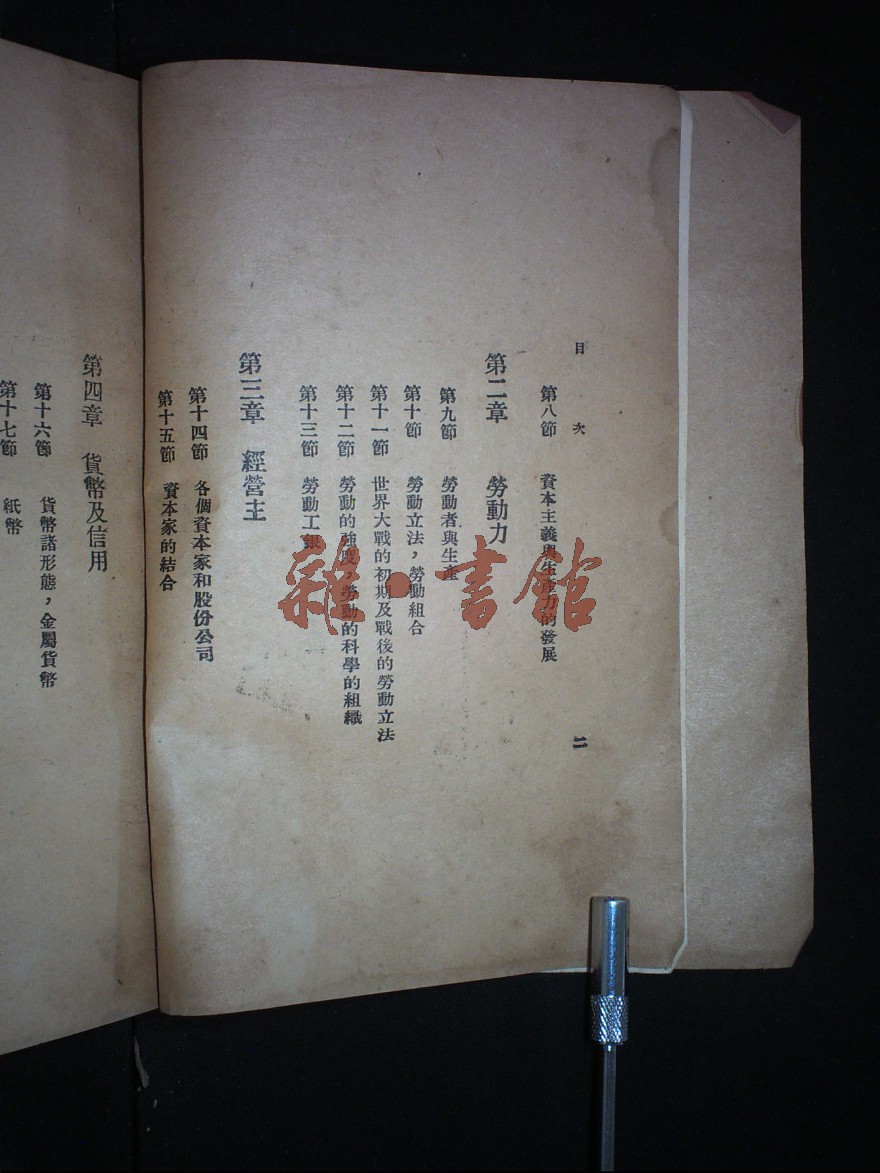 目次 二
第八節 資本主義與生產力的發展
第二章 勞動力
第九節 勞動者與生產
第十節 勞動立法，勞動組合
第十一節 世界大戰的初期及戰後的勞動立法
第十二節 勞動的強度，勞動的科學的組織
第十三節 勞動工銀
第三章 經營主
第十四節 各個資本家和股份公司
第十五節 資本家的結合
第四章 貨幣及信用
第十六節 貨幣諸形態，金屬貨幣
第十七節 紙幣
雜·書館